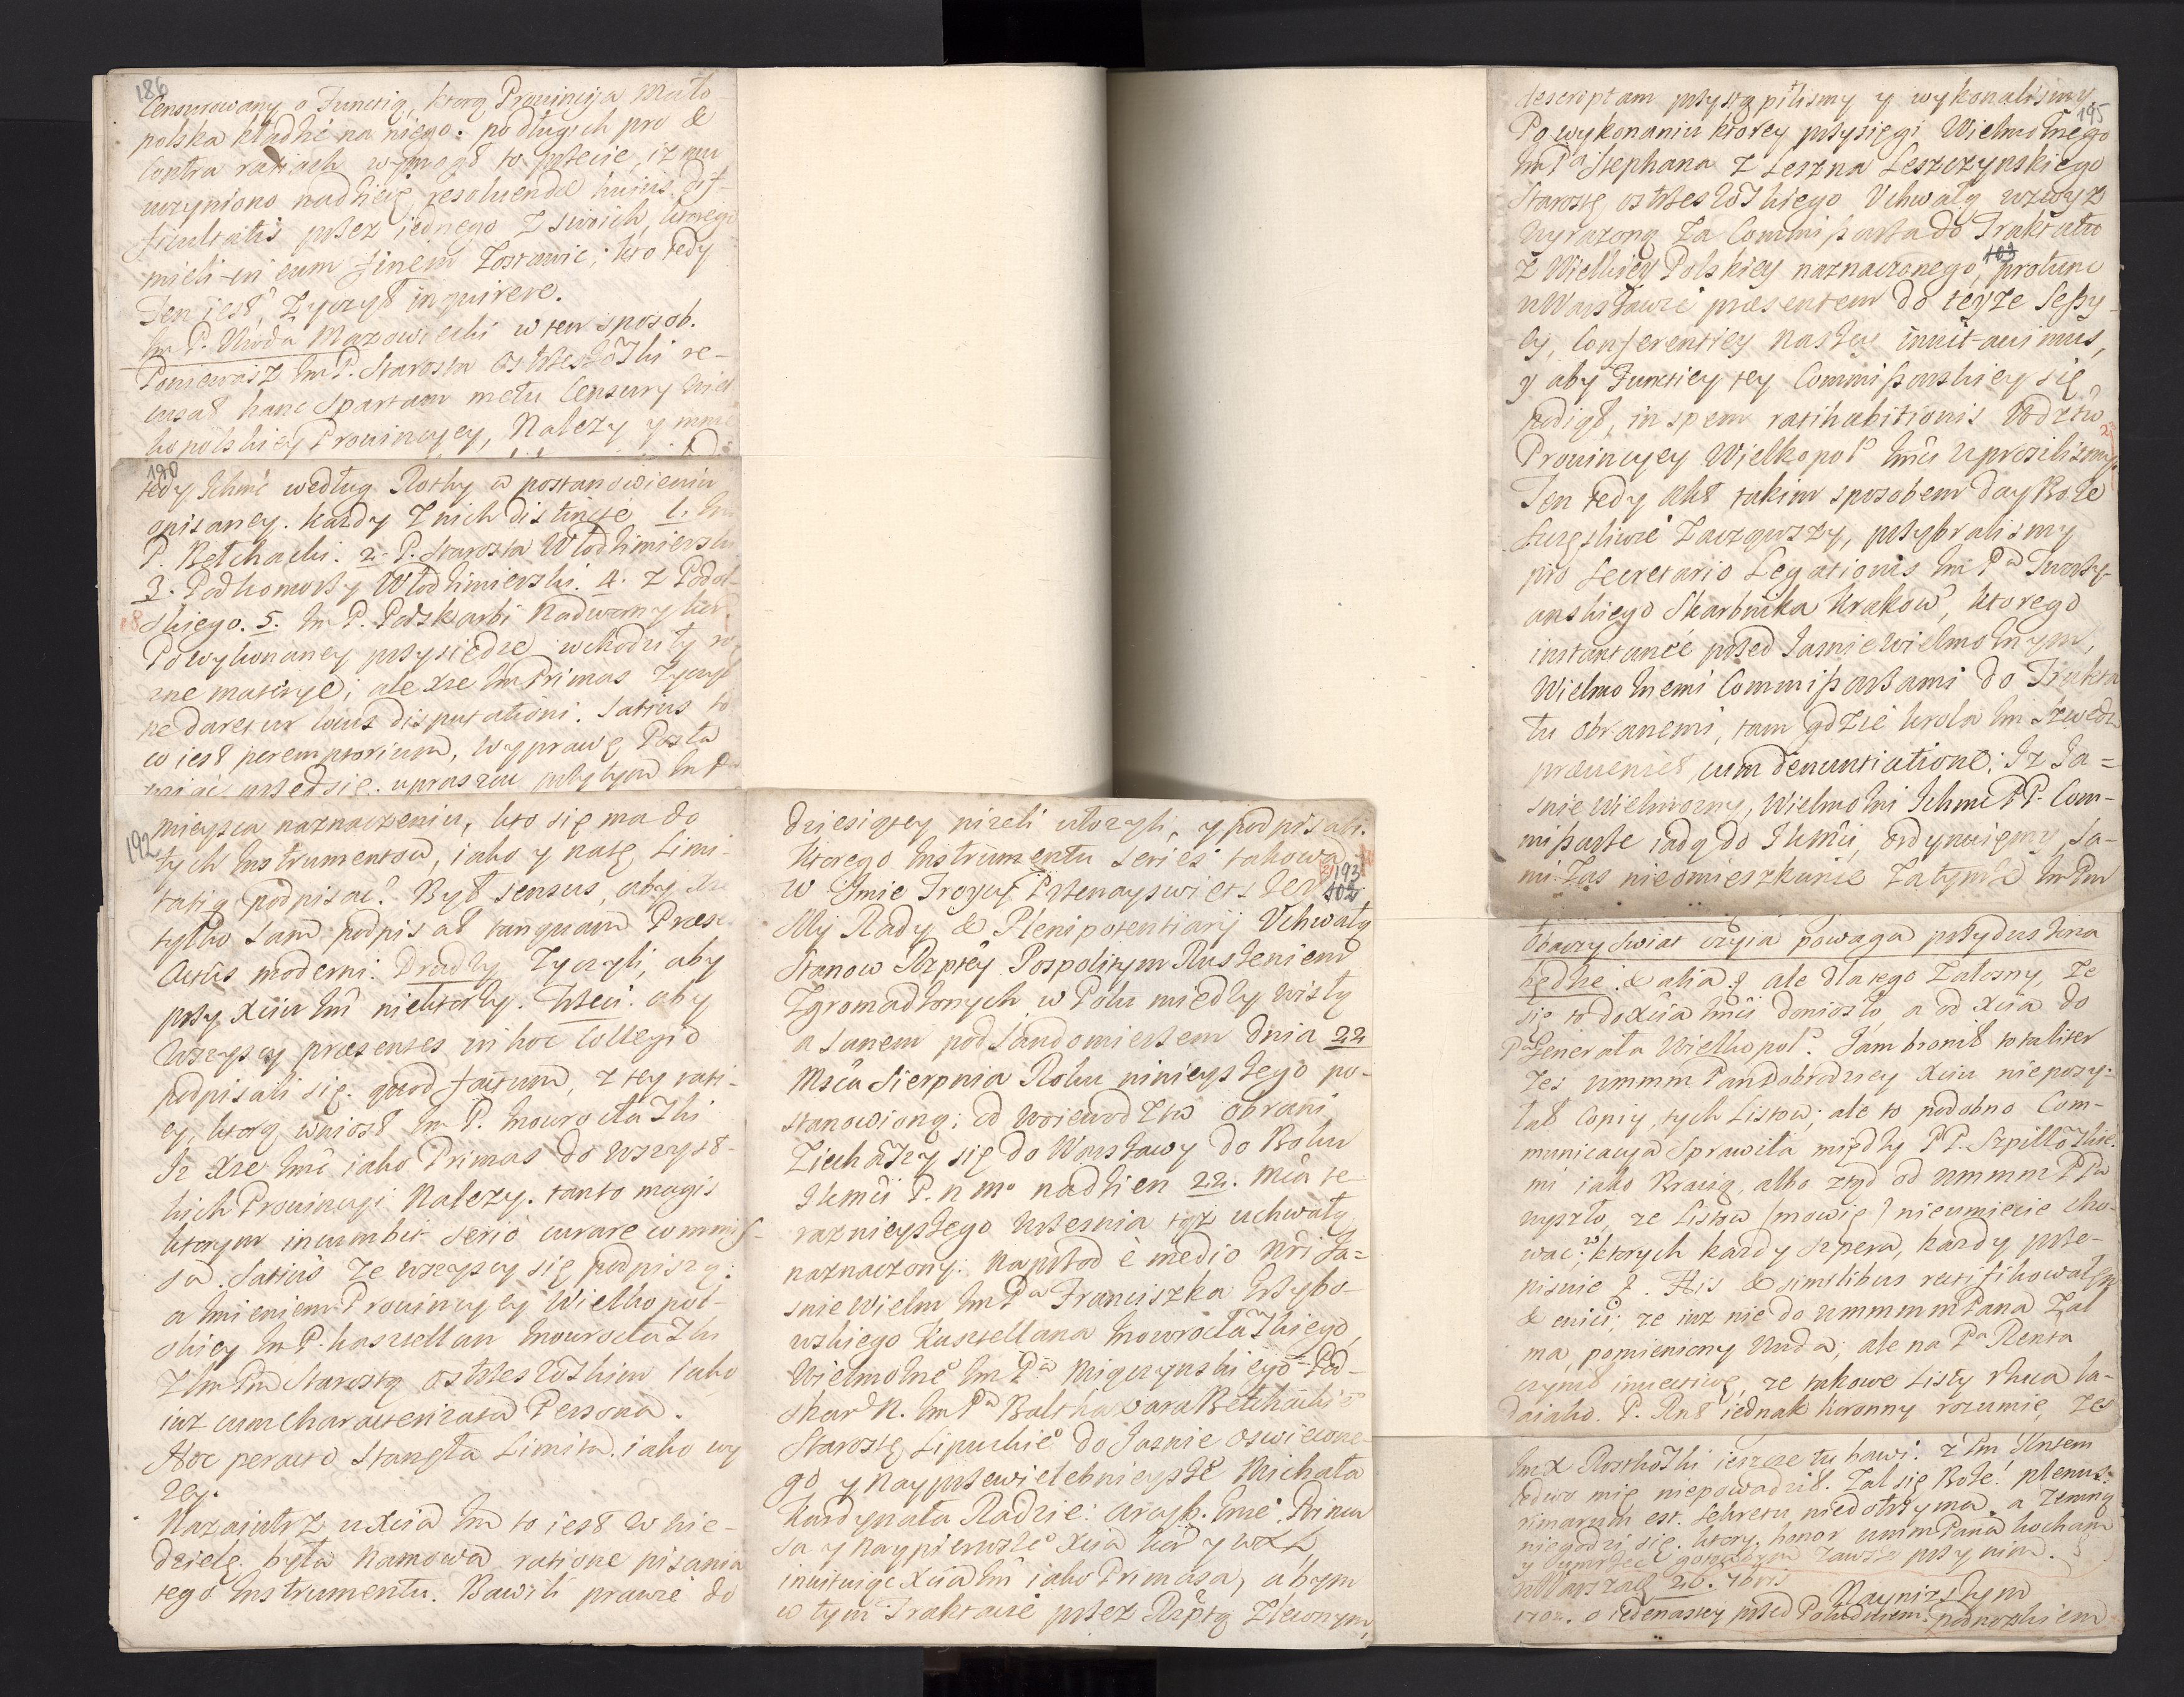 186
Censurowany o Functią, ktorą Prowincyja Mało-
polska kładzie na niego. po długich pro &
Contra ratiach wymogł to przecie, iz mu
uczyniono nadzieię resoluendæ huius dif-
ficultatis przez iednego z swoich, ktorego
mieli in eum finem zostawic; kto tedy
Ten iest, zyczył inquirere.
Im P. Wda Mazowiecki w ten sposob.
Poniewasz Im P. Starosta Ostrzeszowski re-
cusat hanc Spartam metu Censury Wiel-
kopolskiey Prowincyey, Nalezy y mnie
190
tedy Ichmc według Rothy w postanowieniu
opisaney. kazdy z nich distincte 1. Im
P. Bełchacki. 2. P. Starosta Włodzimierski
3. Podkomorzy Włodzimierski. 4. z Podol-
skiego. 5. Im P. Podskarbi Nadworny kor.
Po wykonaney przysiędze wchodziły ro-
zne materye; ale Xze Im Primas zyczył
ne daretur locus disputationi. Satius to
co iest peremptorium, wyprawę Posła
wziąć przed się. upraszał przytym Im P
192
mieysca naznaczeniu, kto się ma do
tych Instrumentow, iako y na tę Limi-
tatią podpisać? Był sensus, aby Xze
tylko sam podpisał tanquam Præses
Actûs moderni. Drudzy zyczyli, aby
przy Xciu Im niektorzy. Trzeci. aby
wszyscy præsentes in hoc Collegio
podpisali się. quod factum, z tey rati-
ey, ktorą wniosł Im P. Inowrocławski
Iz Xze Imc iako Primas do wszyst-
kich Prowincyi Nalezy. tanto magis
ktorym incumbit serio curare commis-
sa. Satius ze wszyscy się podpiszą:
a Imieniem Prowincyey Wielkopol-
skiey Im P. kasztellan Inowrocławski
z Im Pm Starostą Ostrzeszowskim iako
iuz cum characterizata Persona.
Hoc peracto Stanęła Limita. iako wy
zey.
Nazaiutrz u Xcia Im to iest w Nie-
dzielę. była Namowa ratione pisania
tego Instrumentu. Bawili prawie do
dziesiątey nizeli ułozyli, y podpisali.
Ktorego Instrumentu series takowa
193
102
w Imie Troycy Przenayswiętszey
My Rady & Plenipotentiarij Uchwałą
Stanow Rzptey Pospolitym Ruszeniem
Zgromadzonych w Polu miedzy Wisłą
a Sanem pod Sandomierzem dnia 22
Msca Sierpnia Roku ninieyszego po-
stanowioną; od Woiewodztw obrani
Ziechawszy się do Warszawy do Boku
IKmci P. N. Mo nadzien 22. Mca te-
raznieyszego Wrzesnia tąz uchwałą
naznaczony. Naprzod è medio Nri Ja-
snie Wielm Im Pa Franciszka Grzybo-
wskiego Kasztellana Inowrocławskiego,
Wielmozne Im Pa Migczynskiego Pod-
skar N. Im Pa Balthazara Bełchackiego
Starostę Lipnickie do Jasnie Oswiecone-
go y Nayprzewielebnieyszego Michała
Kardynała Radzie: Arcyb. Gnie. Prima
sa y Naypierwsze Xcia kor y WXL
invituiąc Xcia Im iako Primasa, abysm
w tym Traktacie przez Rzptą Zleconym,
195
descriptam przystąpilismy y wykonalismy
Po wykonaniu ktorey przysięgi Wielmoznego
Im Pa Stephana z Leszna Leszczynskiego
Starostę ostrzeszowskiego Uchwałą wzwyz
wyrazoną za Commissarza do Traktatu
103
z Wielkiey Polskiey naznaczonego, protunc
w Warszawie præsentem do teyze Sessy-
ey, Conferentiey Naszey invitavimus,
y aby Functiey tey Commissarskiey się
podiął, in spem ratihabitionis Wdztw
Prowincyey Wielkopol Imci uprosilismy
Ten tedy Akt takim sposobem day Boze
szczęsliwie zacząwszy, przybralismy
pro Secretario Legationis Im Pa Tworzy-
anskiego Skarbnika Krakow, ktorego
instantanee przed Jasnie Wielmoznym,
Wielmoznemi Commissarzami do Trakta
tu obranemi, tam gdzie krola Im Szwedz
prævenied cum denuntiatione; Iz Ja-
snie Wielmozny, Wielmozni Ichmc PP. Com-
missarze iadą do IKmci, ordynuiemy, Sa-
mi zas nieomieszkanie zatymze Im Pm
Obaczy swiat czyia powaga przyduszona
będzie. & alia. ale dlatego załosny, ze
się to do Xcia Imci doniosło a od Xcia do
Pa Generała Wielkopol. Jam bronił totaliter
zes WMMM Pan Dobrodziey Xciu nieposy-
łał Copiy tych Listow; ale to podobno Com-
municacya sprawiła między PP. Szpilkowskie-
mi iako Bracią, albo ztąd od WMMM PPa
wyszło, ze Listow (mowię) nieumiecie cho-
wać; ktorych kazdy szpera, kazdy prze-
pisuie. His & similibus ratifikowałem
& enici; ze iuz nie do WMMM Pana zal
ma, pomieniony Wda; ale na Pa Renta
czynił invectivę, ze takowe Listy rzuca la-
daiako. P. Rnt iednak koronny rozumie, zes
Im X Roskowski ieszcze tu bawi. z Pm Rntem
ledwo mię niepowadził. Zal się Boze! plenus
rimarum est. Sekretu niedotrzyma. a ze mną
niegodzi się. ktory honor WMM Pana kocham
y umrzec gotowem zawsze przy nim.
w Warszaw 26. 7bris
1702. o iedenastey przed Południem.
Naynizszym
podnozkiem